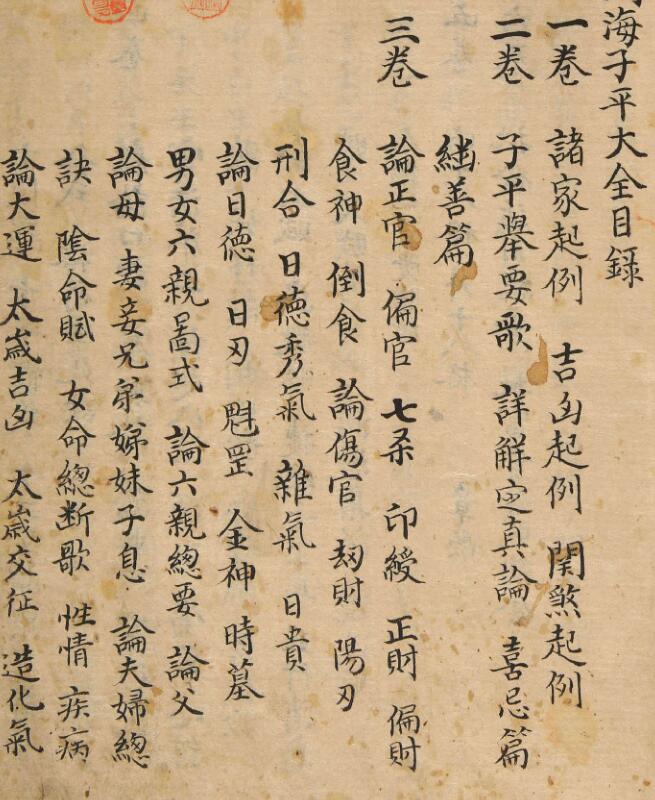 海子平大全目録
一巻 諸家起例 吉凶起例 関煞起例
二巻 子平舉要歌 詳解定真論 喜忌篇
継善篇
三巻 論正官 偏官 七杀 印綬 正財 偏財
食神 倒食 論傷官 劫財 陽刃
刑合 日徳秀氣 雜氣 日貴
論日徳 日刃 魁罡 金神 時墓
男女六親啚式 論六親總要 論父
論母 妻妾兄弟娣妹子息 論夫婦總
訣 陰命賦 女命總断歌 性情 疾病
論大運 太歲吉凶 太歲交征 造化氣